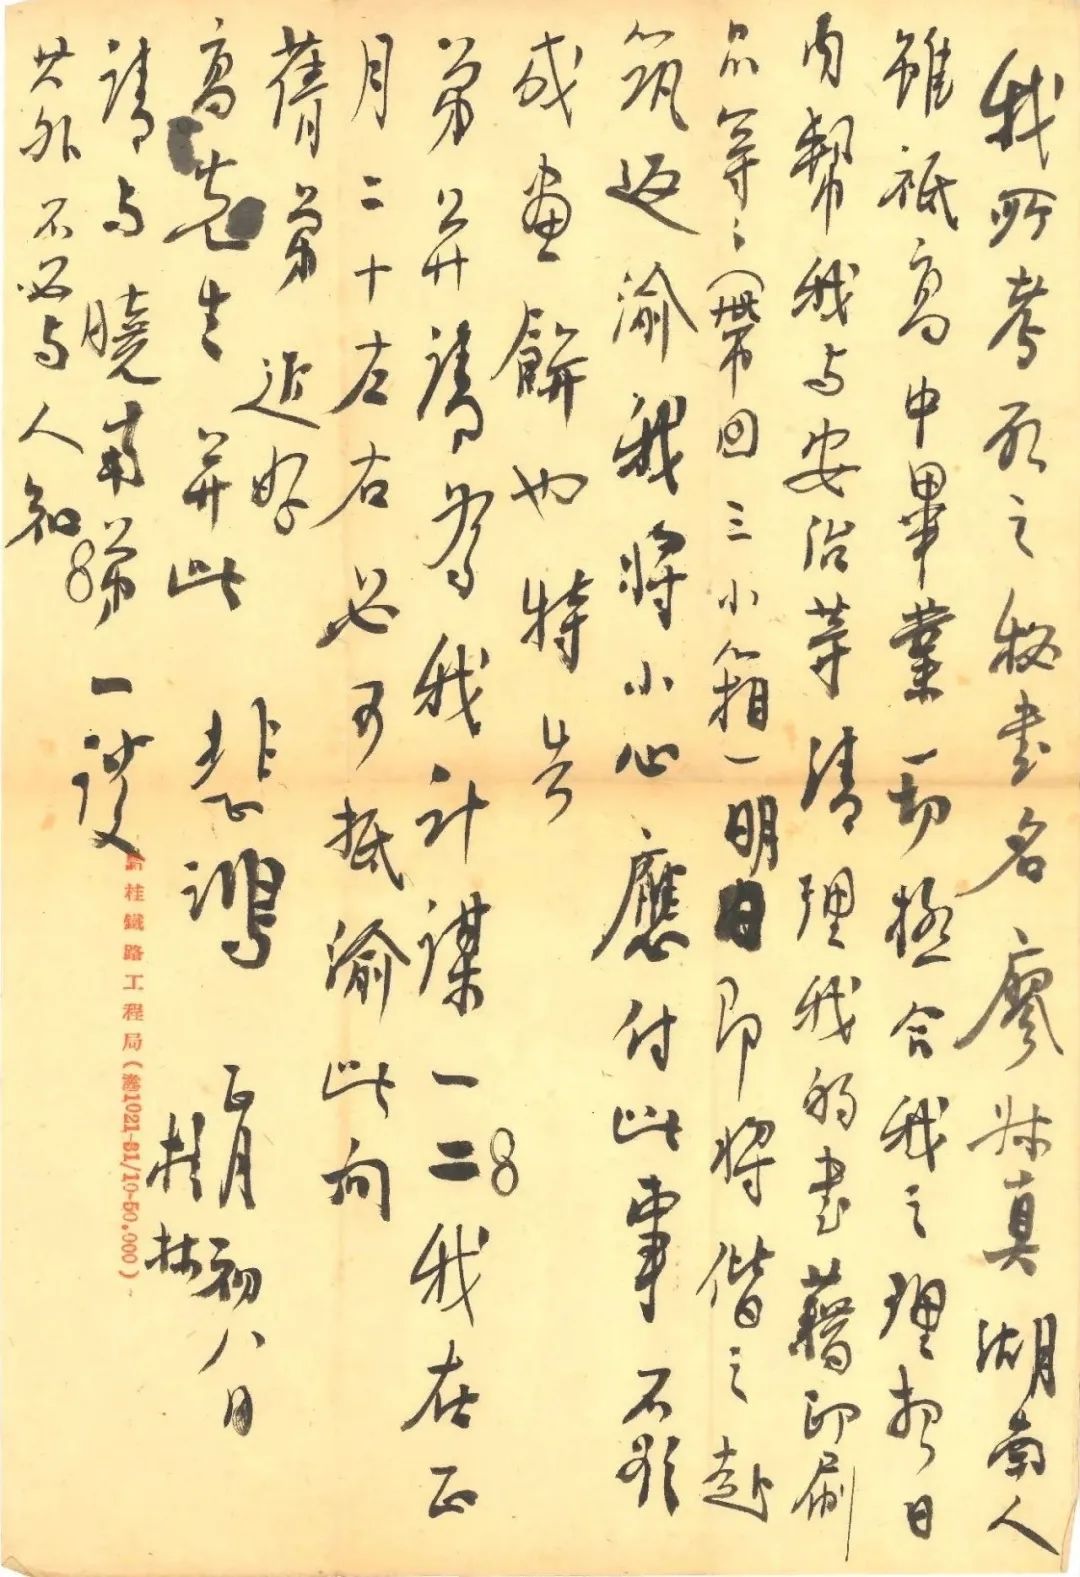 我所考取之秘书名廖静真湖南人
雖祇高中畢業一切極合我之理想日
内幫我与安治等清理我的書藉印刷
品等等（帶回三小箱）明日即將偕之赴
筑返渝我將小心應付此事不欲
成画餅也特告
弟并請為我計謀一二我在正
月二十左右必可抵渝此向
蒨弟 近好
高先生并此 悲鴻 正月初八日
桂林
請与曉南弟一談
其外不必與人知
黔桂鐵路工程局(滙1021-31/10-50.000)